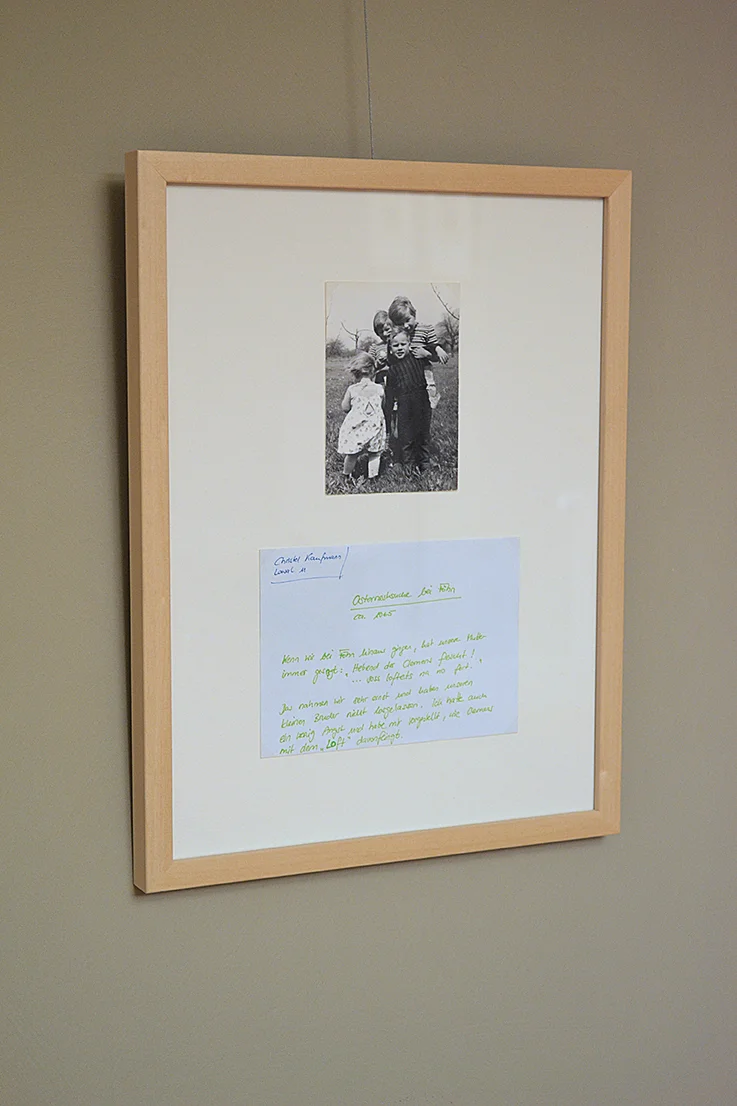 Christl Kaufmann
Osternestsuche bei Föhn
ca. 1965
Wenn wir bei Föhn hinaus gingen, hat unsere Mutter
immer gesagt: "Hebend da Clemens fescht!
... voss loftets na no fort."
Das nahmen wir sehr ernst und haben unseren
kleinen Bruder nicht losgelassen. Ich hatte auch
ein wenig Angst und habe mir vorgestellt, wie Clemens
mit dem "Loft" davonfliegt.